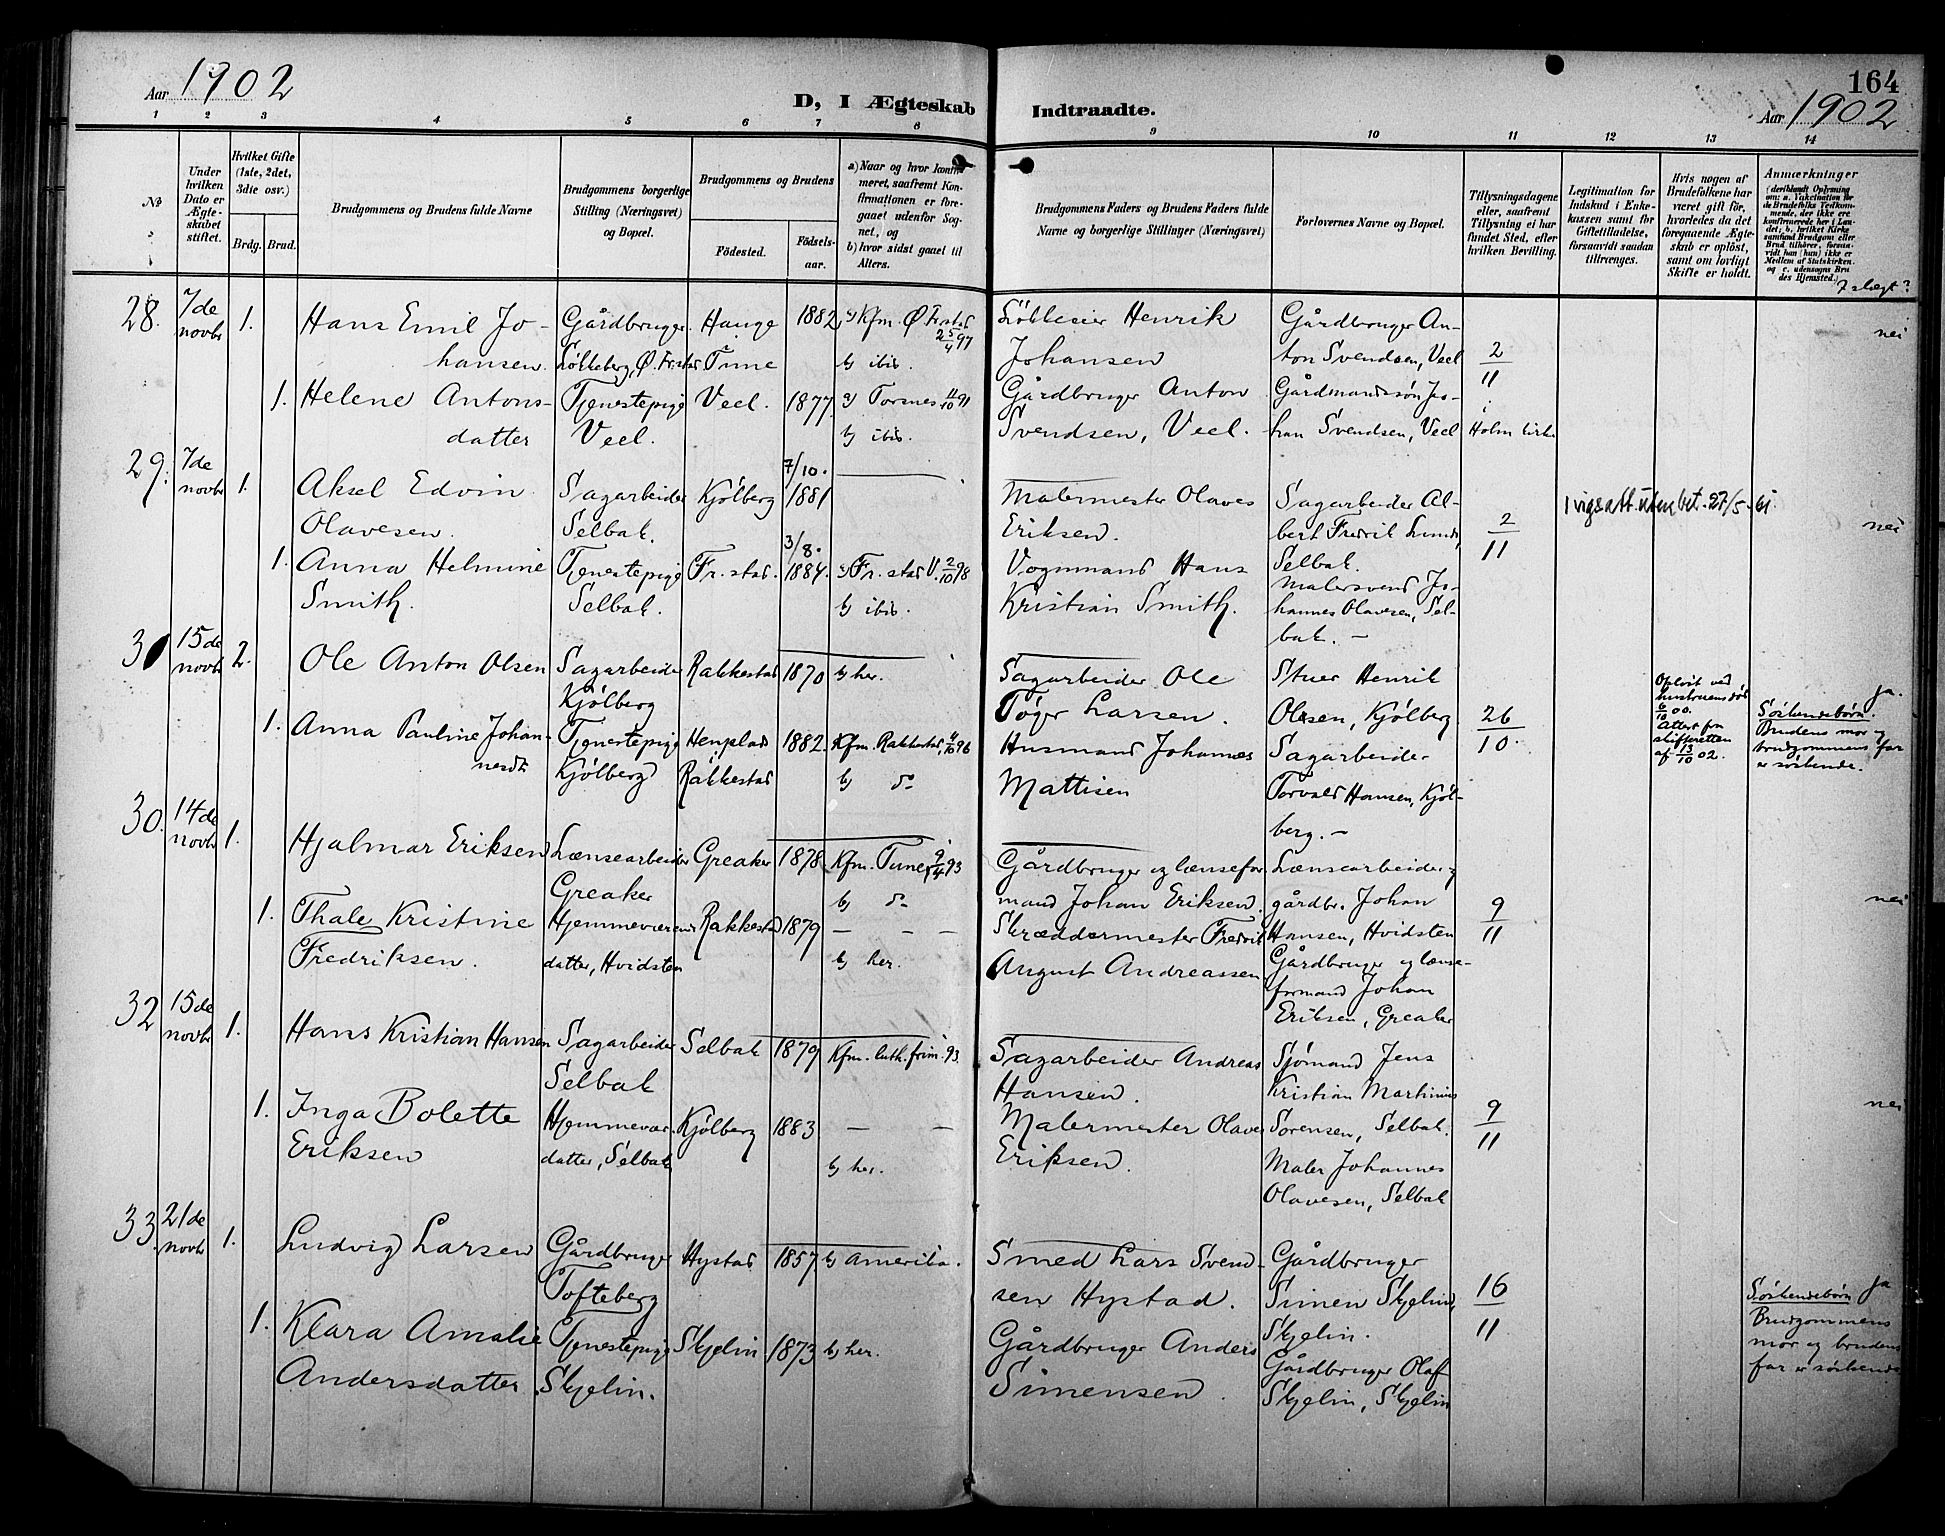 Aar 1902
D, I Ægteskab Indtraadte.
164
Aar 1902
1 2 3 4 5 6 7 8 9 10 11 12 13 14
No
Under hvilken Dato er Ægteskabet stiftet.
Hvilket Gifte (1ste, 2det, 3die osv.)
Brdg. Brud.
Brudgommens og Brudens fulde Navne
Brudgommens borgerlige Stilling (Næringsvei) og Bopæl.
Brudgommens og Brudens
Födested.
Födselsaar.
a) Naar og hvor konfirmeret, saafremt Konfirmationen er foregaaet udenfor Sognet, og
b) hvor sidst gaaet til Alters.
Brudgommens Faders og Brudens Faders fulde Navne og borgerlige Stillinger (Næringsvei)
Forlovernes Navne og Bopæl.
Tillysningsdagene eller, saafremt Tillysning ei har fundet Sted, efter hvilken Bevilling.
Legitimation for Indskud i Enkekassen samt for Giftetilladelse, forsaavidt saadan tiltrænges.
Hvis nogen af Brudefolkene har været gift för, hvorledes da det foregaaende Ægteskab er oplöst, samt om lovligt Skifte er holdt.
Anmærkninger
(deriblandt Oplysning om: a. Vakcination for de Brudefolks Vedkommende, der ikke ere konfirmerede her i Landet; b. hvilket Kirkesamfund Brudgom eller Brud tilhører, forsaavidt han (hun) ikke er Medlem af Statskirken, og c. udensogns Brudes Hjemsted.)
? slegt?
28. 7de novbr 1.
Hans Emil Johansen.
Gårdbruger Lökkeberg, Ø. Fr.stad
Hauge Tune
1882
a) Kfm. Ø Fr.stad 25/4 97
b) ibid.
Henrik Johansen
Gårdbruger Anton Svendsen, Veel
2/11
nei
1. Helene Antonsdatter
Tjenestepige Veel.
Veel.
1877
a) Torsnes 11/10 91
b) ibid.
Gårdbruger Anton Svendsen, Veel.
Gårdmandssøn Johan Svendsen, Veel
i Holm kirke
29. 7de novbr 1.
Aksel Edvin Olavesen.
Sagarbeider Selbak.
Kjölberg
7/10. 1881
Malermester Olaves Eriksen.
Sagarbeider Albert Fredrik Lunde, Selbak.
2/11
1 vigsatt. utenbet. 27/5-61.
nei
1. Anna Helmine Smith.
Tjenestepige Selbak.
Fr.stad.
3/8. 1884.
a) Fr.stad V. 2/10 98
b) ibid.
Vognmand Hans Kristian Smith.
Malersvend Johannes Olavesen, Selbak. —
31 15de novbr 2.
Ole Anton Olsen
Sagarbeider Kjölberg
Rakkestad
1870
b) her.
Sagarbeider Ole Töger Larsen.
Stuer Henrik Olsen, Kjölberg.
26/10.
Oplöst ved hustruens död 6/10 00. Attest fra skifteretten af 13/10 02.
ja.
Söskendebörn. Brudens mor og brudgommens far er söskende.
1. Anna Pauline Johannesdt
Tjenestepige Kjölberg
Henplad Rakkestad
1882.
Kfm. Rakkestad, 4/10 96
b) do
Husmand Johannes Mattisen
Sagarbeider Torvald Hansen, Kjölberg. —
30. 14de novbr 1.
Hjalmar Eriksen
Lænsearbeider Greaker
Greaker
1878
Kfm. Tune 9/4 93
b) do
Gårdbruger og lænseformand Johan Eriksen.
Lænsearbeider og gårdbr. Johan Hansen, Hvidsten
9/11
nei
1. Thale Kristine Fredriksen.
Hjemmeværende datter, Hvidsten
Rakkestad
1879
— — —
b) her.
Skræddermester Fredrik August Andreassen
Gårdbruger og lænseformand Johan Eriksen, Greaker
32 15de novbr 1.
Hans Kristian Hansen
Sagarbeider Selbak
Selbak
1879
Kfm. luth. frim. 93.
Sagarbeider Andreas Hansen.
Sjömand Jens Kristian Martinius Sörensen, Selbak.
9/11
nei
1. Inga Bolette Eriksen
Hjemmevær. datter, Selbak
Kjölberg
1883
— —
b) her.
Malermester Olaves Eriksen.
Maler Johannes Olavesen, Selbak
33. 21de novbr 1.
Ludvig Larsen
Gårdbruger Tofteberg
Hystad
1857
b) Amerika.
Smed Lars Svendsen Hystad.
Gårdbruger Simen Skjelin, Skjelin.
16/11
ja
Söskendebörn Brudgommens mor og brudens far er söskende
1. Klara Amalie Andersdatter
Tjenestepige Skjelin.
Skjelin
1873
b) her.
Gårdbruger Anders Simensen.
Gårdbruger Olaf Skjelin, Skjelin